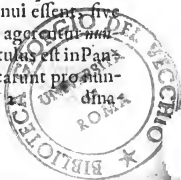 nui essent, sive
agerentur nun-
tulus est in Pan-
carunt pro nun-
dina-
BIBLIOTECA GIORGIO DEL VECCHIO
ROMA